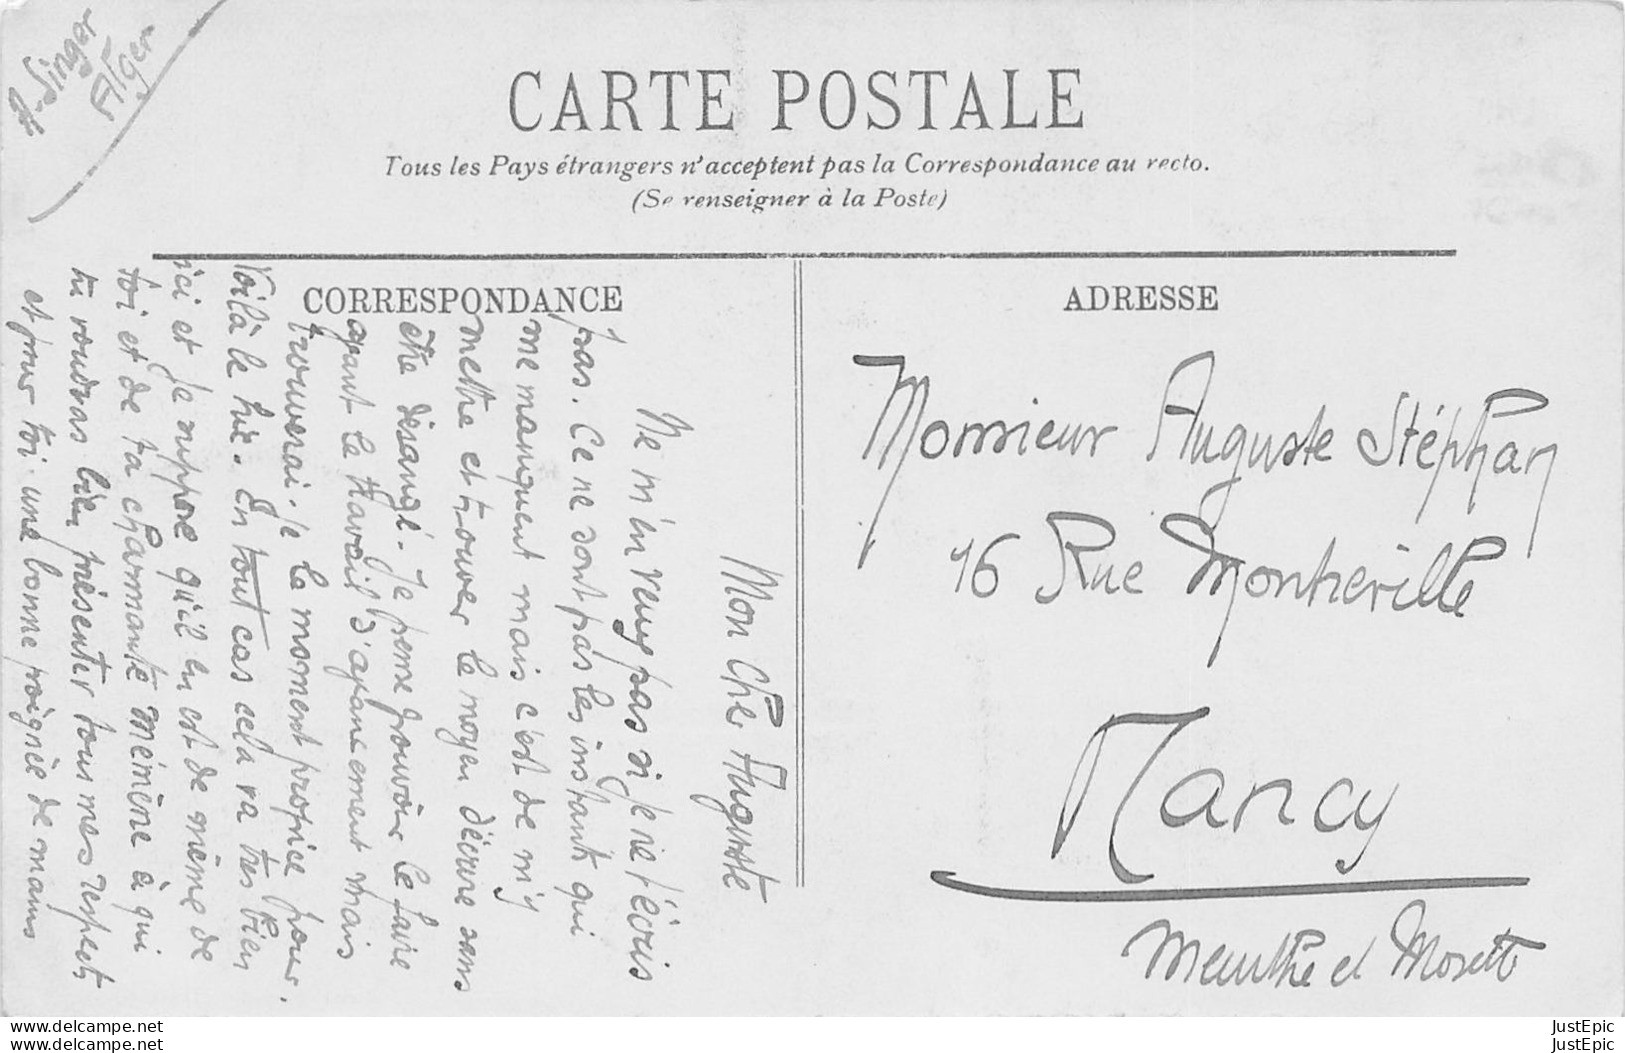 A. Singer
Alger
CARTE POSTALE
Tous les Pays étrangers n'acceptent pas la Correspondance au recto.
(Se renseigner à la Poste)
CORRESPONDANCE
Mon Cher Auguste
Ne m'en veux pas si je ne t'écris
pas. Ce ne sont pas les instants qui
me manquent mais c'est de m'y
mettre et trouver le moyen d'écrire sans
être dérangé. Je pense pouvoir le faire
ayant le travail mais
trouverai-je le moment propice pour.
Voilà le hic. En tout cas cela va très bien
ici et je suppose qu'il en est de même de
toi et de ta charmante mémène à qui
tu voudras bien présenter tous mes respects
et pour toi une bonne poignée de mains
ADRESSE
Monsieur Auguste Stéphan
16 Rue
Nancy
Meurthe et Moselle
www.delcampe.net
www.delcampe.net
JustEpic
JustEpic